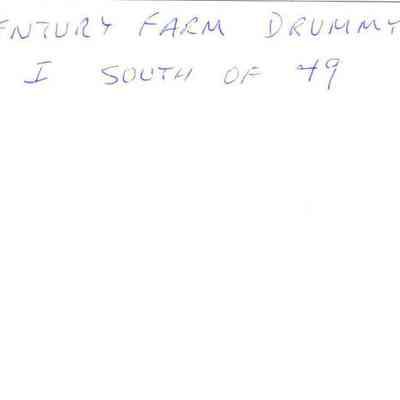 ENTURY FARM DRUMMT
I SOUTH OF 49